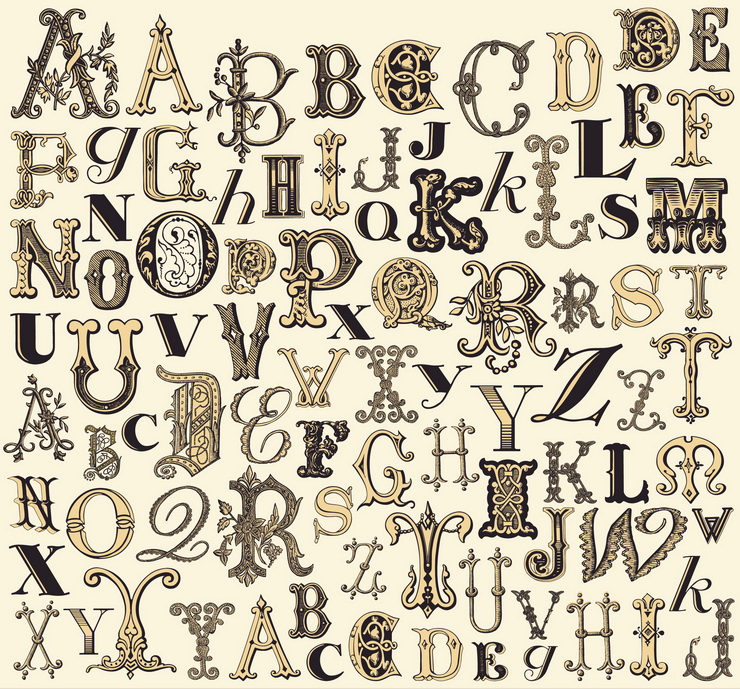 A A B B C C D D E
E G G H H I J J K K L L E F
N N O O P P Q Q R R S S T M
U U V V W W X X Y Y Z Z T
A B C D E F G H I K L M
N O Q R S T U J W W
X Y Z U V k
X Y Y A B C C D E g H I J